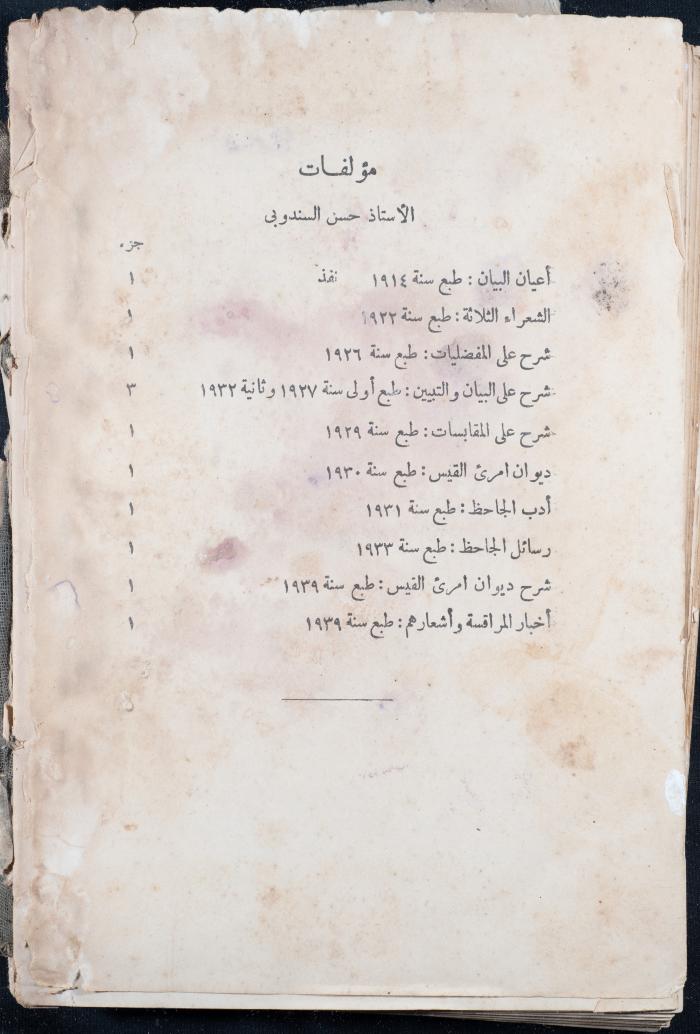 مؤلفات
الأستاذ حسن السندوبى
جزء
أعيان البيان : طبع سنة ١٩١٤ نفذ ١
الشعراء الثلاثة : طبع سنة ١٩٢٢ ١
شرح على المفضليات : طبع سنة ١٩٢٦ ١
شرح على البيان والتبيين : طبع أولى سنة ١٩٢٧ وثانية ١٩٣٢ ٣
شرح على المقابسات : طبع سنة ١٩٢٩ ١
ديوان امرئ القيس : طبع سنة ١٩٣٠ ١
أدب الجاحظ : طبع سنة ١٩٣١ ١
رسائل الجاحظ : طبع سنة ١٩٣٣ ١
شرح ديوان امرئ القيس : طبع سنة ١٩٣٩ ١
أخبار المراقسة وأشعارهم : طبع سنة ١٩٣٩ ١